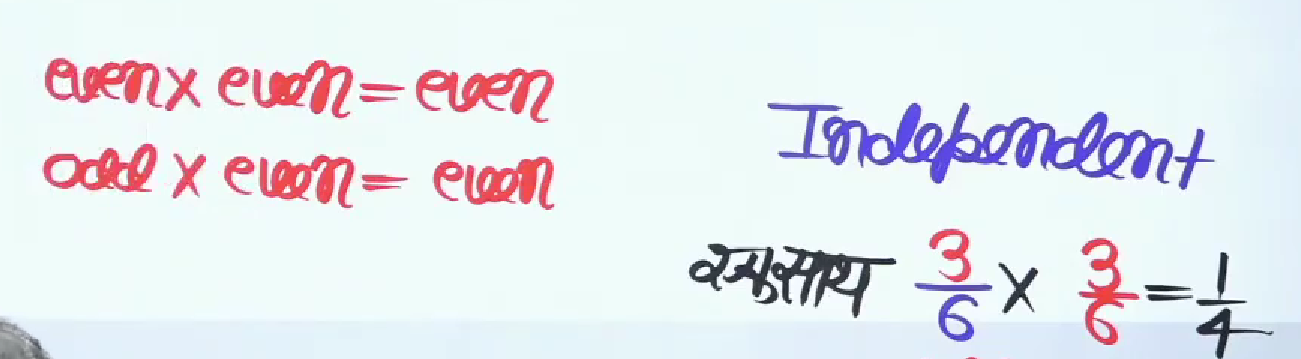 even x even = even
odd x even = even
Independent
एकसाथ 3/6 x 3/6 = 1/4